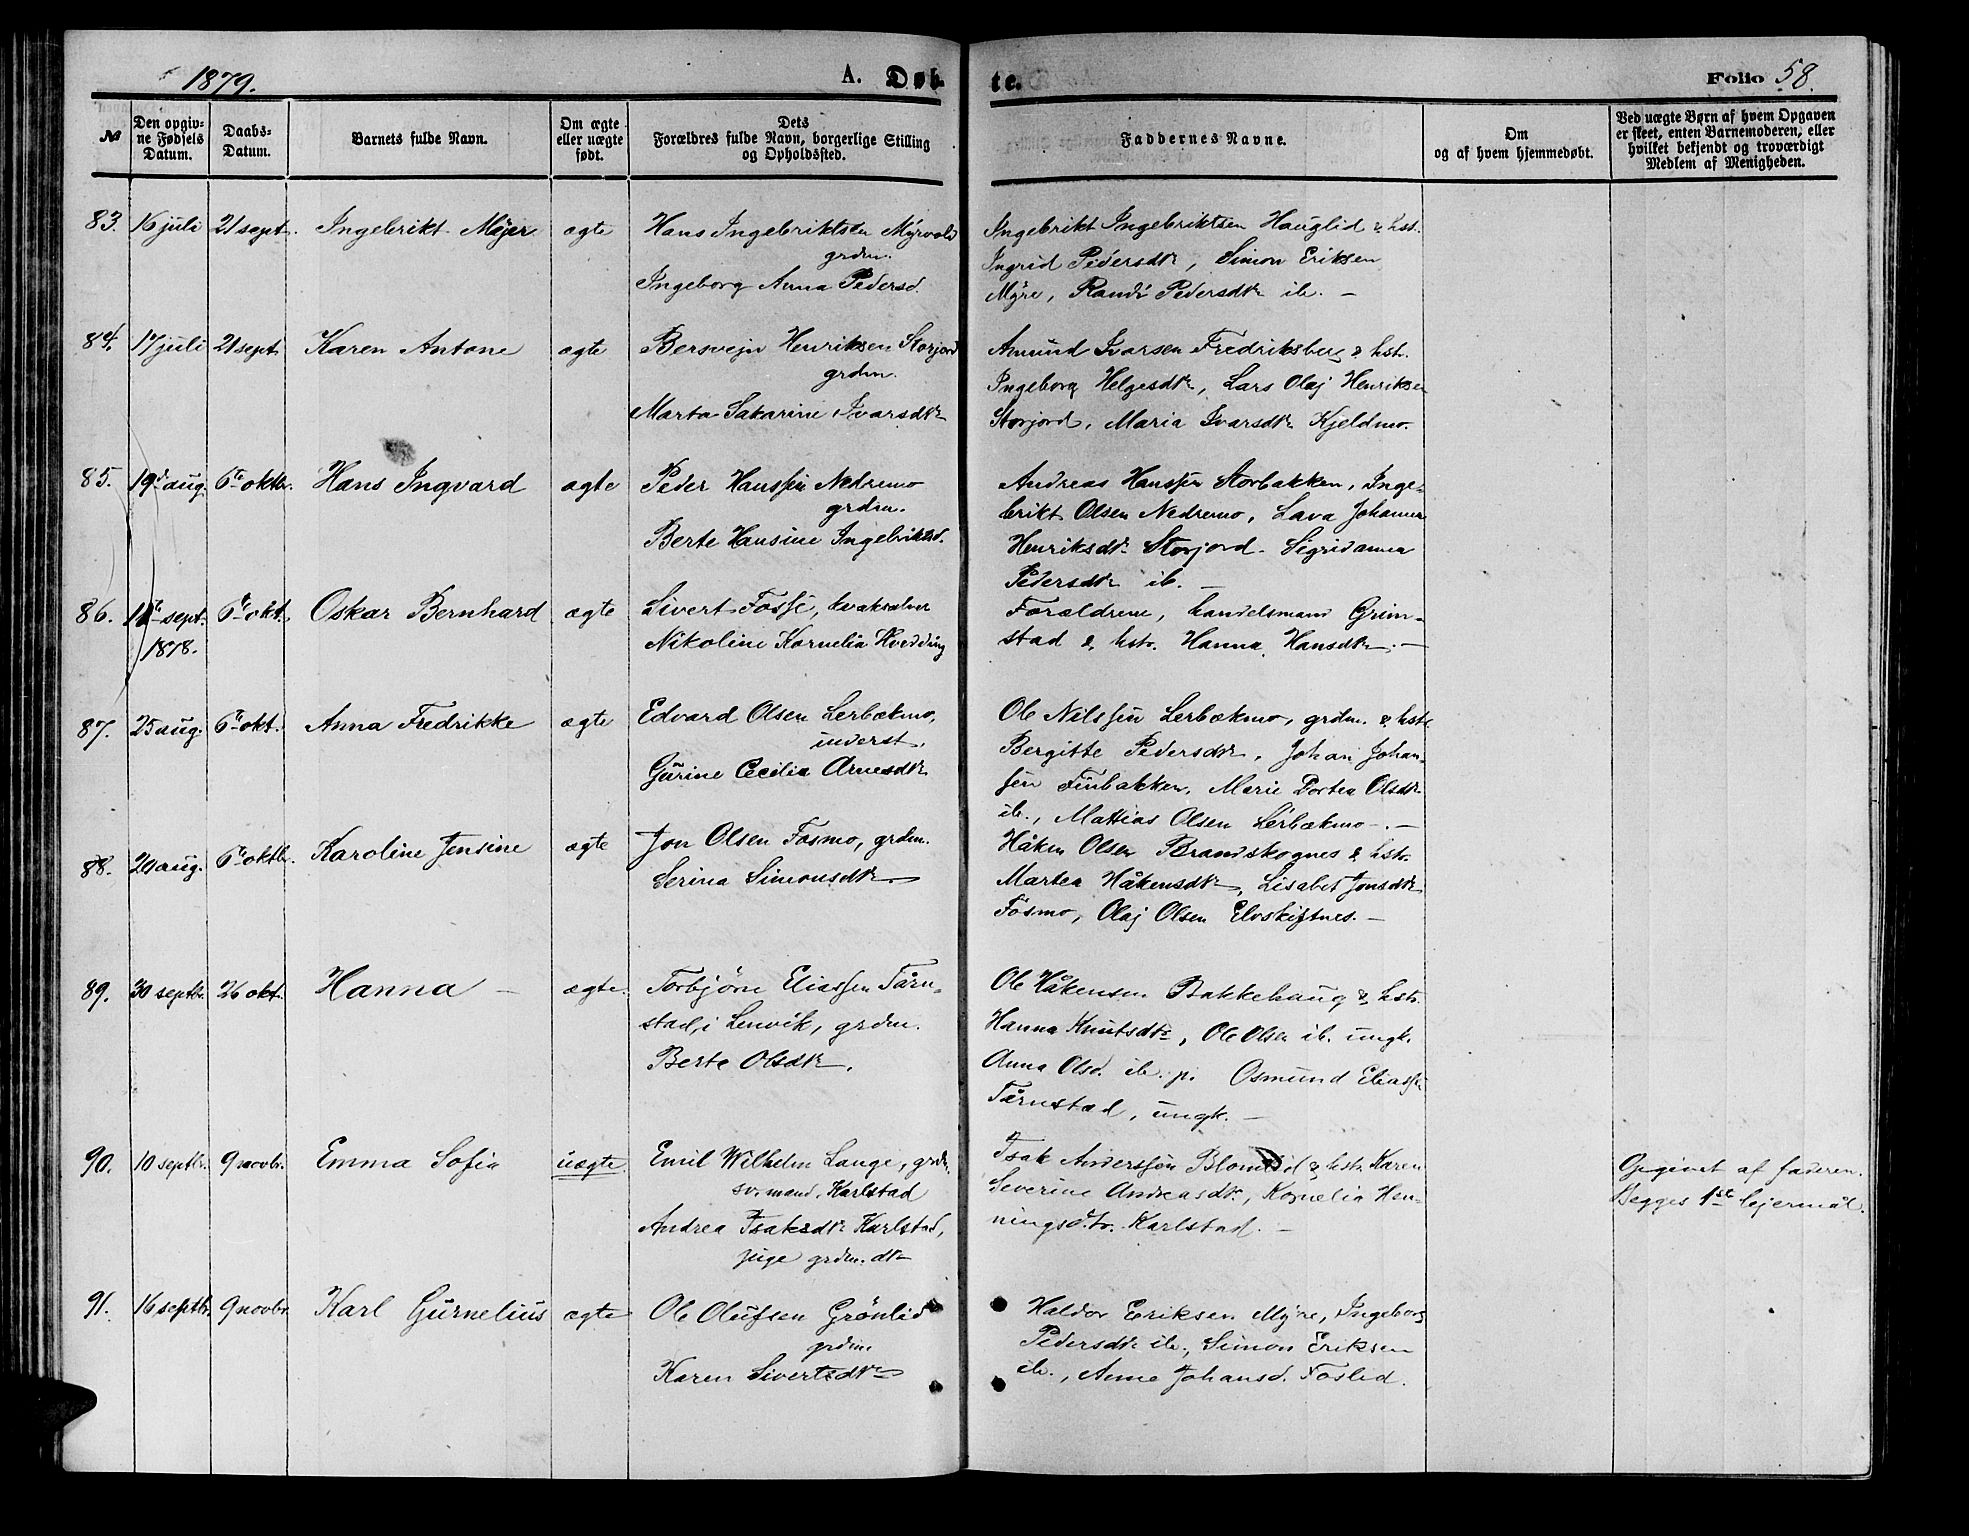 1879.
A. Døb-
te.
Folio 58.
№
Den opgiv-
ne Fødsels
Datum.
Daabs-
Datum.
Barnets fulde Navn.
Om ægte
eller uægte
født.
Dets
Forældres fulde Navn, borgerlige Stilling
og Opholdssted.
Faddernes Navne.
Om
og af hvem hjemmedøbt.
Ved uægte Børn af hvem Opgaven
er skeet, enten Barnemoderen, eller
hvilket bekjendt og troværdigt
Medlem af Menigheden.
83. 16 juli 21 sept. Ingebrikt Mejer ægte
Hans Ingebriktsen Myrvold
grdm.
Ingeborg Anna Pedersd.
Ingebrikt Ingebriktsen Hauglid & hst.
Ingrid Pedersdtr, Simon Eriksen
Myre, Randi Pedersdtr ib. –
84. 17 juli 21 sept. Karen Antone ægte
Bersvejn Henriksen Storjord
grdm.
Marta Sakarine Ivarsdtr
Amund Ivarsen Fredriksberg & hstr.
Ingeborg Helgesdtr, Lars Olaj Henriksen
Storjord, Maria Ivarsdtr Kjeldmo.
85. 19de aug. 6te oktbr. Hans Ingvard ægte
Peder Hanssen Nedremo
grdm.
Berte Hansine Ingebriktsd.
Andreas Hanssen Storbakken, Inge-
brikt Olsen Nedremo, Lava Johanna
Henriksdtr Storjord. Sigridanna
Pedersdtr ib. –
86. sept. 1878. 6te okt. Oskar Bernhard ægte
Sivert Fosse, kvaksalver
Nikoline Kornelia Hvedding
Forældrene, handelsmand Grim-
stad & hstr. Hanna Hansdtr. –
87. 25 aug. 6te okt. Anna Fredrikke ægte
Edvard Olsen Lerbækmo,
inderst.
Gurine Cecilia Arnesdtr
Ole Nilssen Lerbækmo, grdm. & hstr
Bergitte Pedersdtr, Johan Johan-
sen Finbakken, Marie Dortea Olsdtr
ib., Mattias Olsen Lerbækmo. –
88. 20 aug. 6te oktbr. Karoline Jensine ægte
Jon Olsen Fosmo, grdm.
Serina Simonsdtr
Håken Olsen Brandskognes & hstr.
Martea Håkensdtr, Lisabet Jonsdtr
Fosmo, Olaj Olsen Elvskiftnes. –
89. 30 septbr. 26 okt. Hanna – ægte.
Torbjörn Eliassen Tårn-
stad, i Lenvik, grdm.
Berte Olsdtr.
Ole Håkensen Bakkehaug & hstr.
Hanna Knutsdtr, Ole Olsen ib. ungk.
Anna Olsd. ib. p. Osmund Eliassen
Tårnstad, ungk. –
90. 10 septbr. 9 novbr. Emma Sofia uægte
Emil Wilhelm Lange, grdm.
sv. mand, Karlstad
Andrea Isaksdtr Karlstad,
pige grdm. dtr
Isak Anderssen Blomlid & hstr. Karen
Severine Andreasdtr, Kornelia Hen-
ningsdtr. Karlstad. –
Opgivet af faderen.
Begges 1ste lejermål.
91. 16 septbr. 9 novbr. Karl Gurnelius ægte
Ole Olufsen Grönlid
grdm.
Karen Sivertsdtr
Haldor Eriksen Myre, Ingeborg
Pedersdtr ib., Simon Eriksen
ib., Anne Johansd. Foslid.